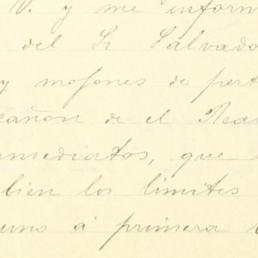 V. y me inform
del Sr Salvado
y mojones de pert
cañon de el Rea
nmediatos, que
bien los limites
uno á primera